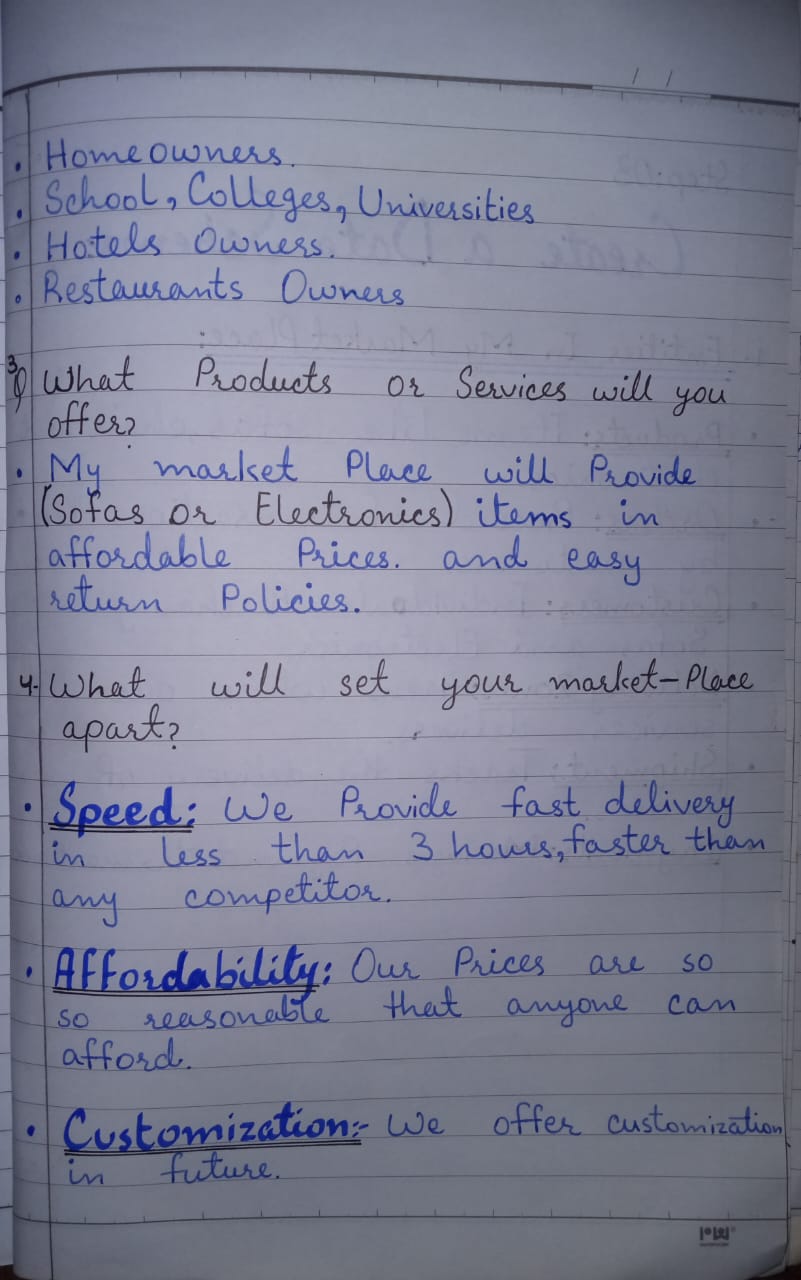 • Homeowners.
• School, Colleges, Universities
• Hotels Owners.
• Restaurants Owners
3) What Products or Services will you
offer?
• My market Place will Provide
(Sofas or Electronics) items in
affordable Prices. and easy
return Policies.
4. What will set your market-Place
apart?
• Speed: We Provide fast delivery
in less than 3 hours, faster than
any competitor.
• Affordability: Our Prices are so
so reasonable that anyone can
afford.
• Customization:- We offer customization
in future.